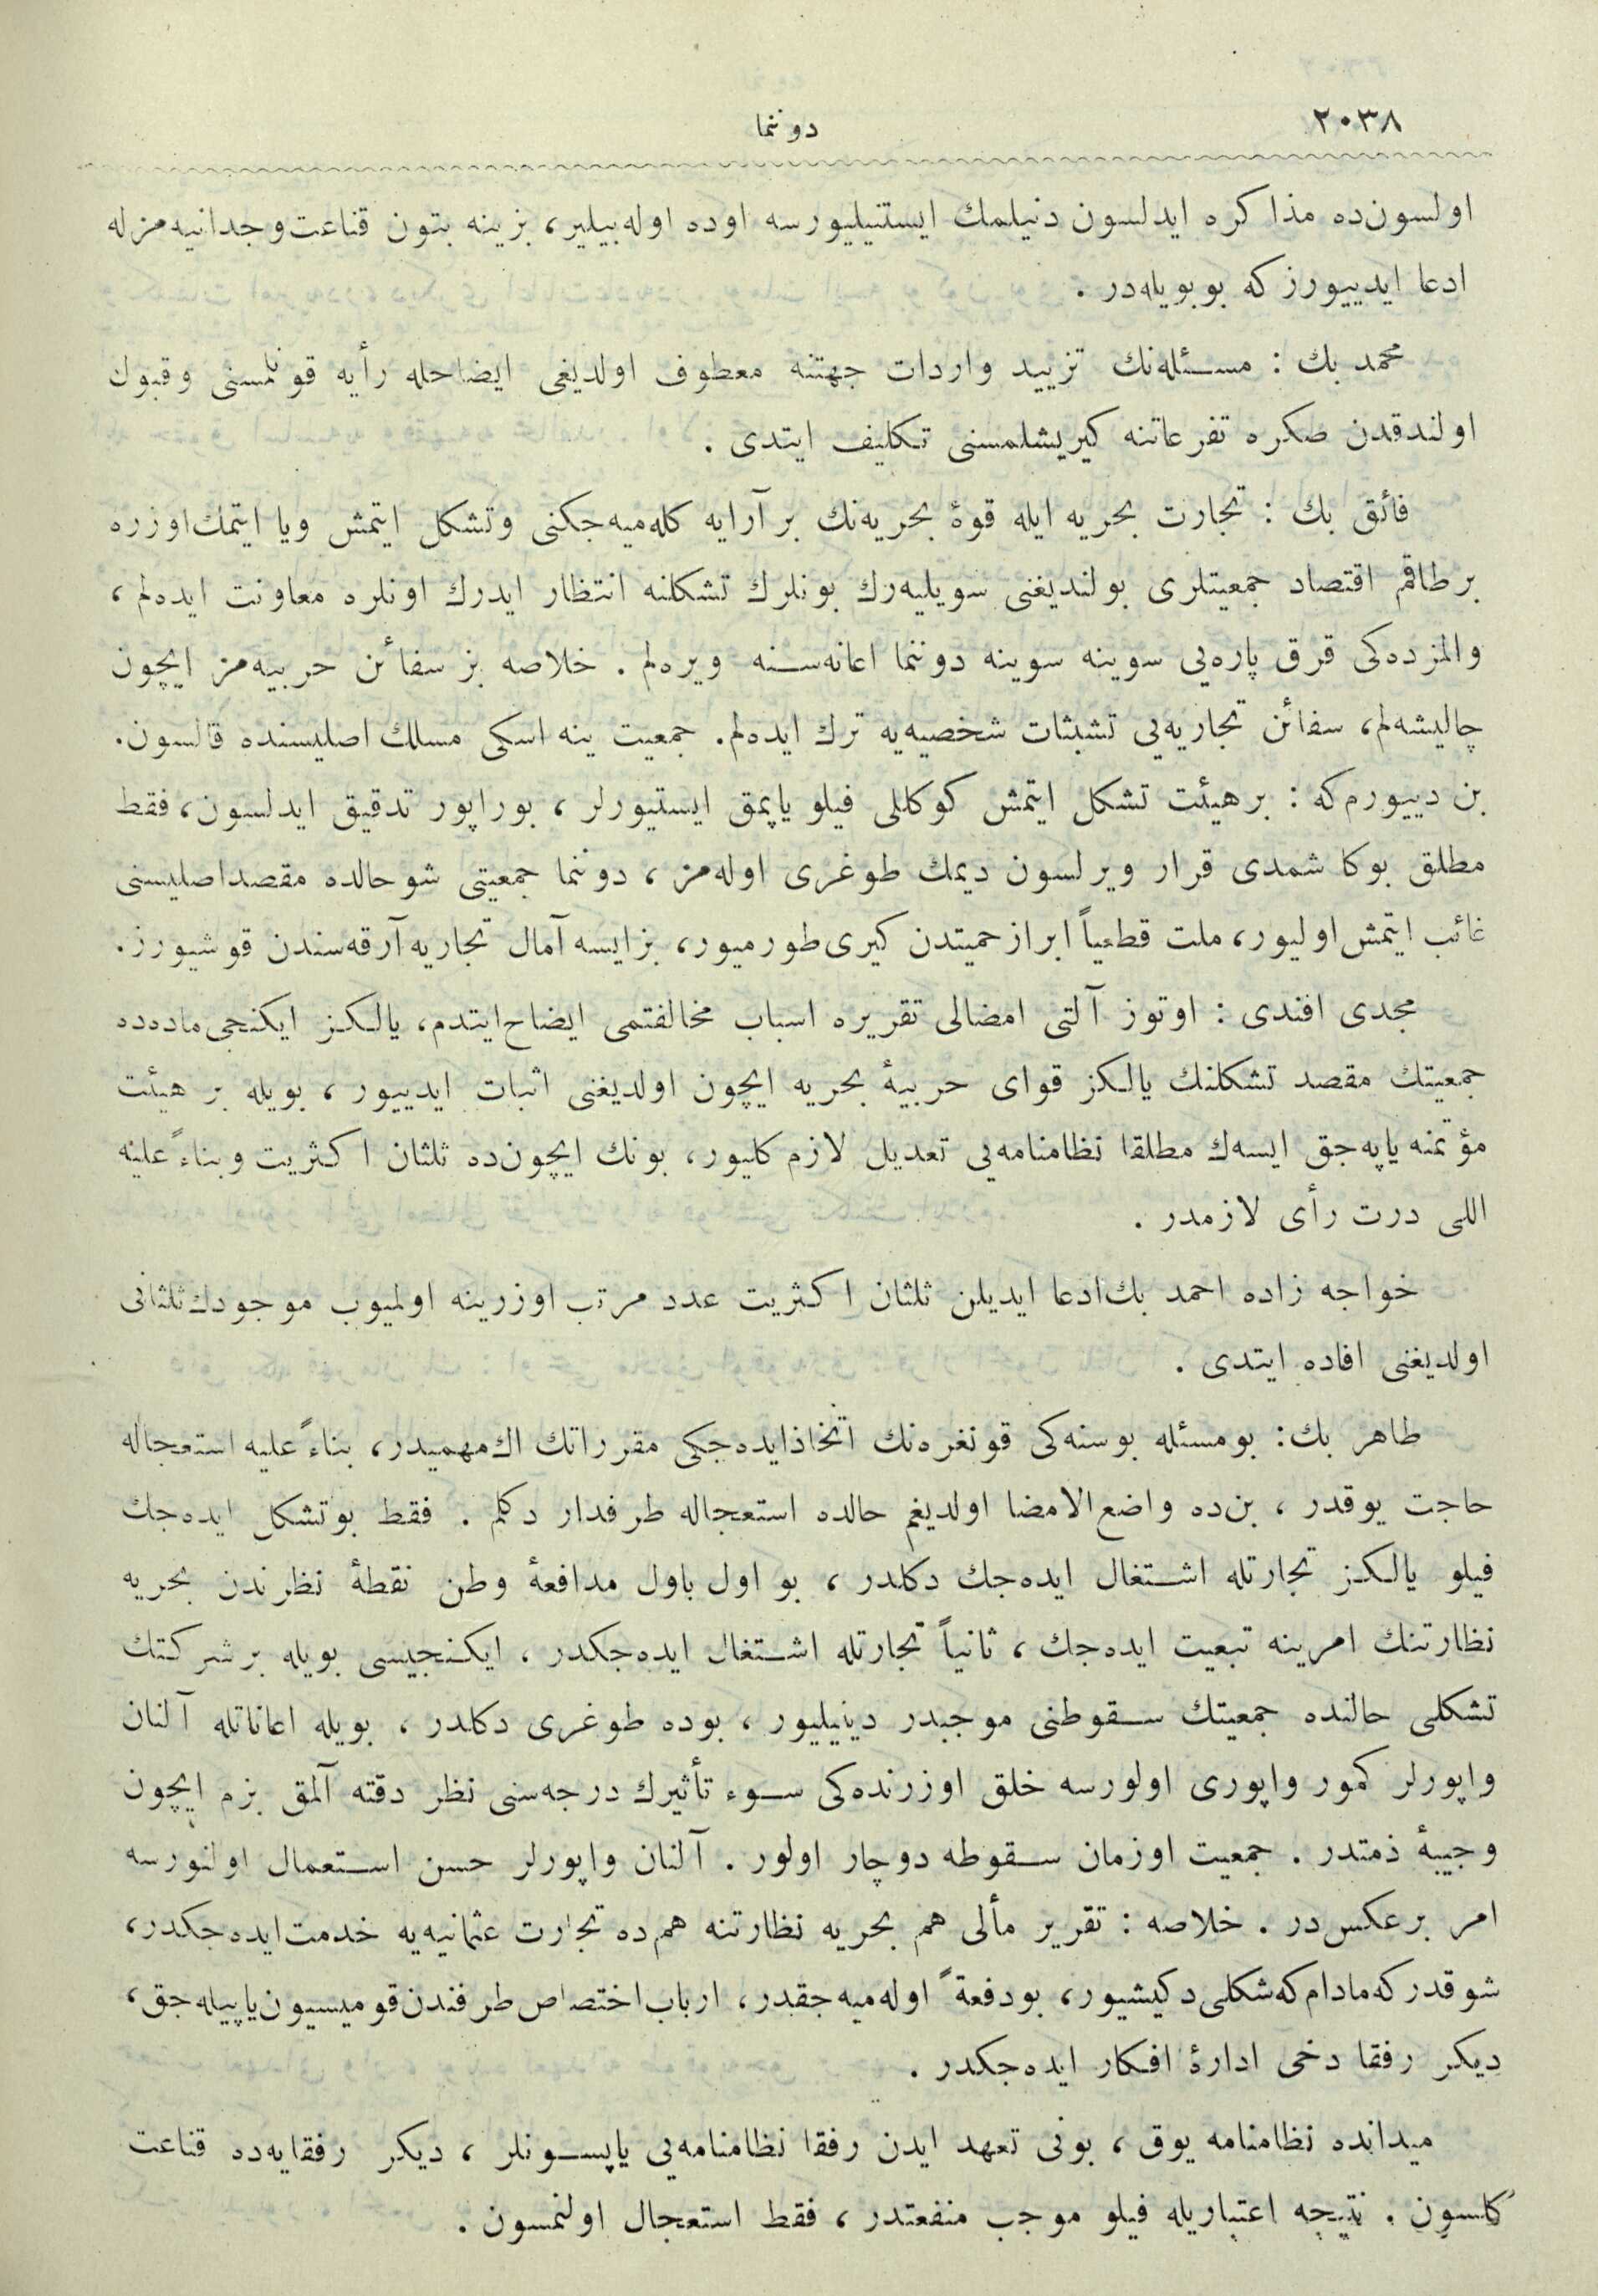 ٢٠٣٨
دوننما
اولسون‌ده مذاكره ايدلسون دنيلمك ايستنيليورسه اوده اوله‌بيلير، بزينه بتون قناعت‌وجدانيه‌مزله
ادعا ايدييورزكه بوبويله‌در .
محمد بك : مسئله‌نك تزييد واردات جهتنه معطوف اولديغى ايضاحله رأيه قونلمسنى وقبول
اولندقدن صكره تفرعاتنه كيريشلمسنى تكليف ايتدى .
فائق بك : تجارت بحريه ايله قوۀ بحريه‌نك برآرايه كله‌ميه‌جكنى وتشكل ايتمش ويا ايتمك‌اوزره
برطاقم اقتصاد جمعيتلرى بولنديغنى سويليه‌رك بونلرك تشكلنه انتظار ايدرك اونلره معاونت ايده‌لم ،
والمزده‌كى قرق پاره‌يى سوينه سوينه دوننما اعانه‌سنه ويره‌لم . خلاصه بز سفائن حربيه‌مز ايچون
چاليشه‌لم، سفائن تجاريه‌يى تشبثات شخصيه‌يه ترك ايده‌لم. جمعيت ينه اسكى مسلك اصليسنده قالسون.
بن دييورم‌كه : برهيئت تشكل ايتمش كوكللى فيلو ياپمق ايستيورلر ، بوراپور تدقيق ايدلسون، فقط
مطلق بوكا شمدى قرار ويرلسون ديمك طوغرى اوله‌مز ، دوننما جمعيتى شوحالده مقصداصليسنى
غائب ايتمش‌اوليور، ملت قطعياً ابرازحميتدن كيرى‌طورميور، بزايسه آمال تجاريه‌آرقه‌سندن قوشيورز.
مجدى افندى : اوتوز آلتى امضالى تقريره اسباب مخالفتمى ايضاح‌ايتدم، يالكز ايكنجى‌ماده‌ده
جمعيتك مقصد تشكلنك يالكز قواى حربيۀ بحريه ايچون اولديغنى اثبات ايدييور ، بويله بر هيئت
مؤتمنه ياپه‌جق ايسه‌ك مطلقا نظامنامه‌يى تعديل لازم كليور، بونك ايچون‌ده ثلثان اكثريت وبناءً عليه
اللى درت رأى لازمدر .
خواجه زاده احمد بك‌ادعا ايديلن ثلثان اكثريت عدد مرتب اوزرينه اولميوب موجودك‌ثلثانى
اولديغنى افاده ايتدى .
طاهر بك: بومسئله بوسنه‌كى قونغره‌نك اتخاذايده‌جكى مقرراتك اك‌مهميدر، بناءً عليه استعجاله
حاجت يوقدر ، بن‌ده واضع‌الامضا اولديغم حالده استعجاله طرفدار دكلم . فقط بوتشكل ايده‌جك
فيلو يالكز تجارتله اشتغال ايده‌جك دكلدر ، بو اول باول مدافعۀ وطن نقطۀ نظرندن بحريه
نظارتنك امرينه تبعيت ايده‌جك ، ثانياً تجارتله اشتغال ايده‌جكدر ، ايكنجيسى بويله برشركتك
تشكلى حالنده جمعيتك سقوطنى موجبدر دينيليور ، بوده طوغرى دكلدر ، بويله اعاناتله آلنان
واپورلر كمور واپورى اولورسه خلق اوزرنده‌كى سوء تأثيرك درجه‌سنى نظر دقته آلمق بزم ايچون
وجيبۀ ذمتدر . جمعيت اوزمان سقوطه دوچار اولور . آلنان واپورلر حسن استعمال اولنورسه
امر برعكس‌در . خلاصه : تقرير مألى هم بحريه نظارتنه هم‌ده تجارت عثمانيه‌يه خدمت‌ايده‌جكدر،
شوقدركه‌مادام‌كه‌شكلى‌دكيشيور، بودفعةً اوله‌ميه‌جقدر، ارباب‌اختصاص‌طرفندن‌قوميسيون‌ياپيله‌جق،
ديكر رفقا دخى ادارۀ افكار ايده‌جكدر .
ميدانده نظامنامه يوق ، بونى تعهد ايدن رفقا نظامنامه‌يى ياپسونلر ، ديكر رفقايه‌ده قناعت
كلسون . نتيجه اعتباريله فيلو موجب منفعتدر ، فقط استعجال اولنمسون .